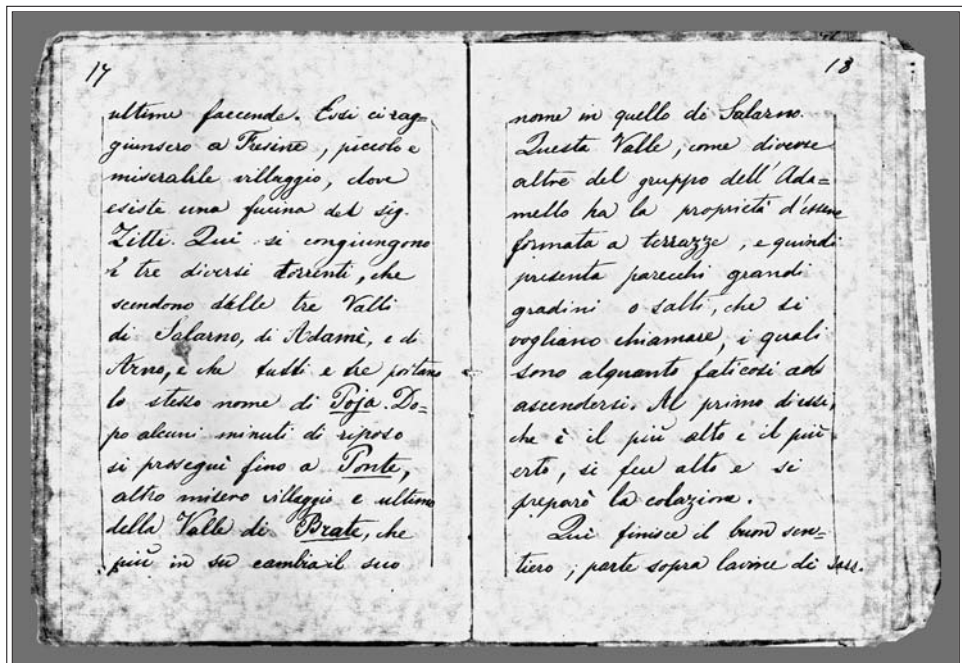 17
ultime faccende. Essi ci rag=
giunsero a Fresine, piccolo e
miserabile villaggio, dove
esiste una fucina del sig.
Zitti. Qui si congiungono
i tre diversi torrenti, che
scendono dalle tre Valli
di Salarno, di Adamè, e di
Arno, e che tutti e tre portano
lo stesso nome di Poja. Do=
po alcuni minuti di riposo
si proseguì fino a Ponte,
altro misero villaggio e ultimo
della Valle di Brate, che
più in su cambia il suo
18
nome in quello di Salarno.
Questa Valle, come diverse
altre del gruppo dell'Ada=
mello ha la proprietà d'essere
formata a terrazze, e quindi
presenta parecchi grandi
gradini o salti, che si
vogliano chiamare, i quali
sono alquanto faticosi ad
ascendersi. Al primo d'essi,
che è il più alto e il più
erto, si fece alto e si
preparò la colazione.
Qui finisce il buon sen=
tiero; parte sopra lavine di sass.